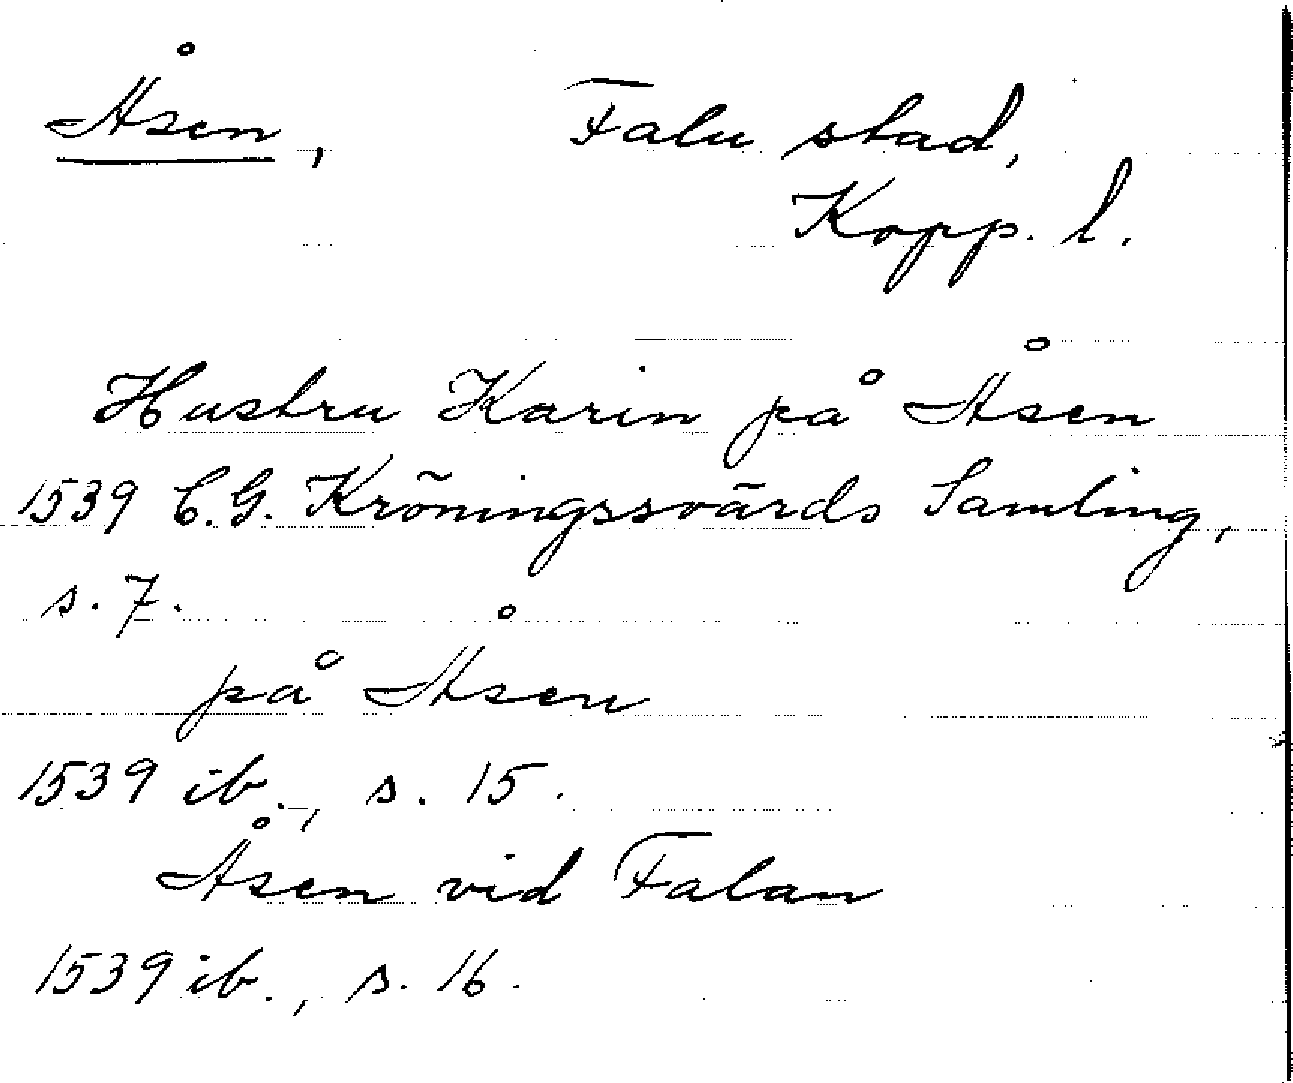 Åsen, Falu stad,
Kopp. l.
Hustru Karin på Åsen
1539 C.G. Kröningssvärds Samling,
s. 7.
på Åsen
1539 ib., s. 15.
Åsen vid Falan
1539 ib., s. 16.